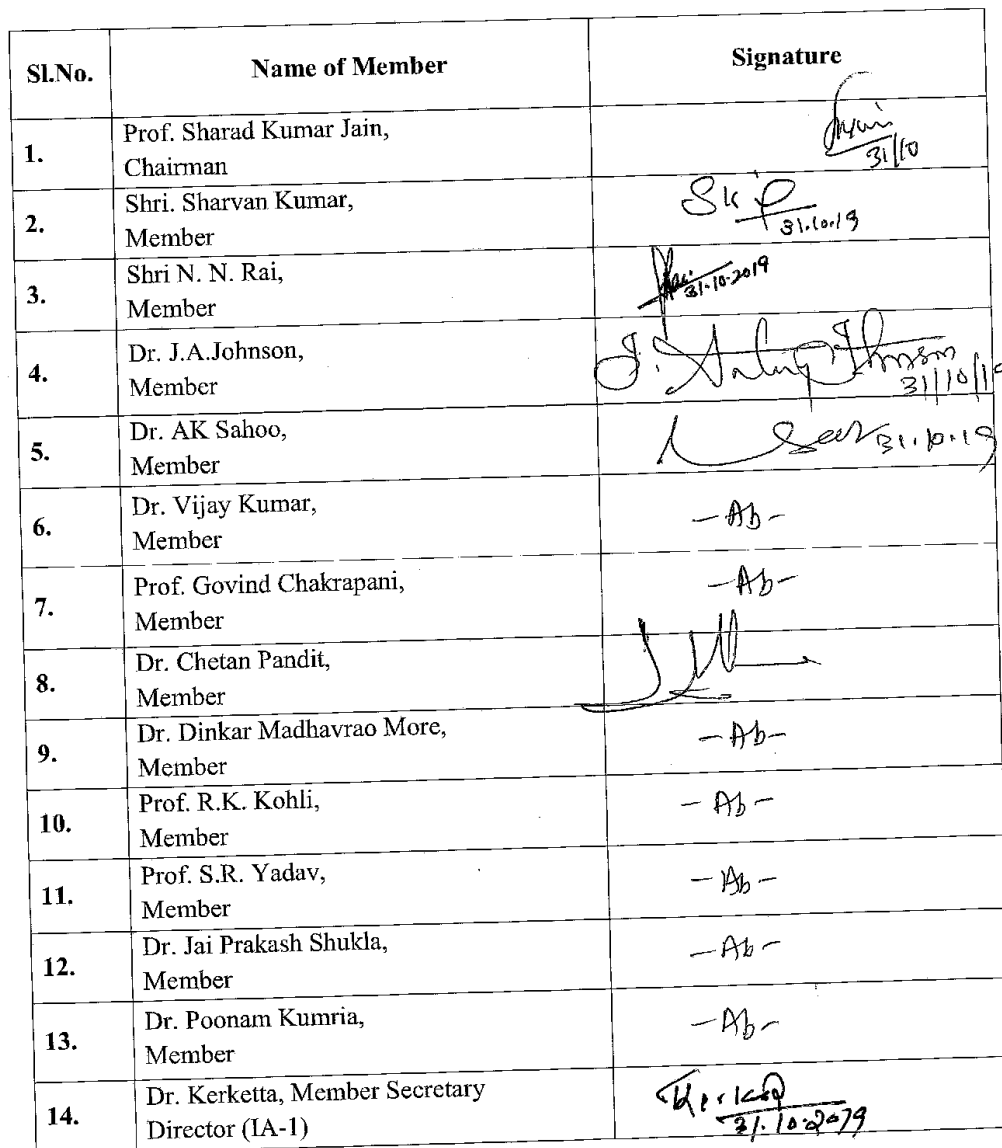 Sl.No. Name of Member Signature
1. Prof. Sharad Kumar Jain,
Chairman
31/10
2. Shri. Sharvan Kumar,
Member
31.10.19
3. Shri N. N. Rai,
Member
31.10.2019
4. Dr. J.A.Johnson,
Member
J. Antony Johnson
31/10/19
5. Dr. AK Sahoo,
Member
31.10.19
6. Dr. Vijay Kumar,
Member
-Ab-
7. Prof. Govind Chakrapani,
Member
-Ab-
8. Dr. Chetan Pandit,
Member
9. Dr. Dinkar Madhavrao More,
Member
-Ab-
10. Prof. R.K. Kohli,
Member
-Ab-
11. Prof. S.R. Yadav,
Member
-Ab-
12. Dr. Jai Prakash Shukla,
Member
-Ab-
13. Dr. Poonam Kumria,
Member
-Ab-
14. Dr. Kerketta, Member Secretary
Director (IA-1)
31.10.2019